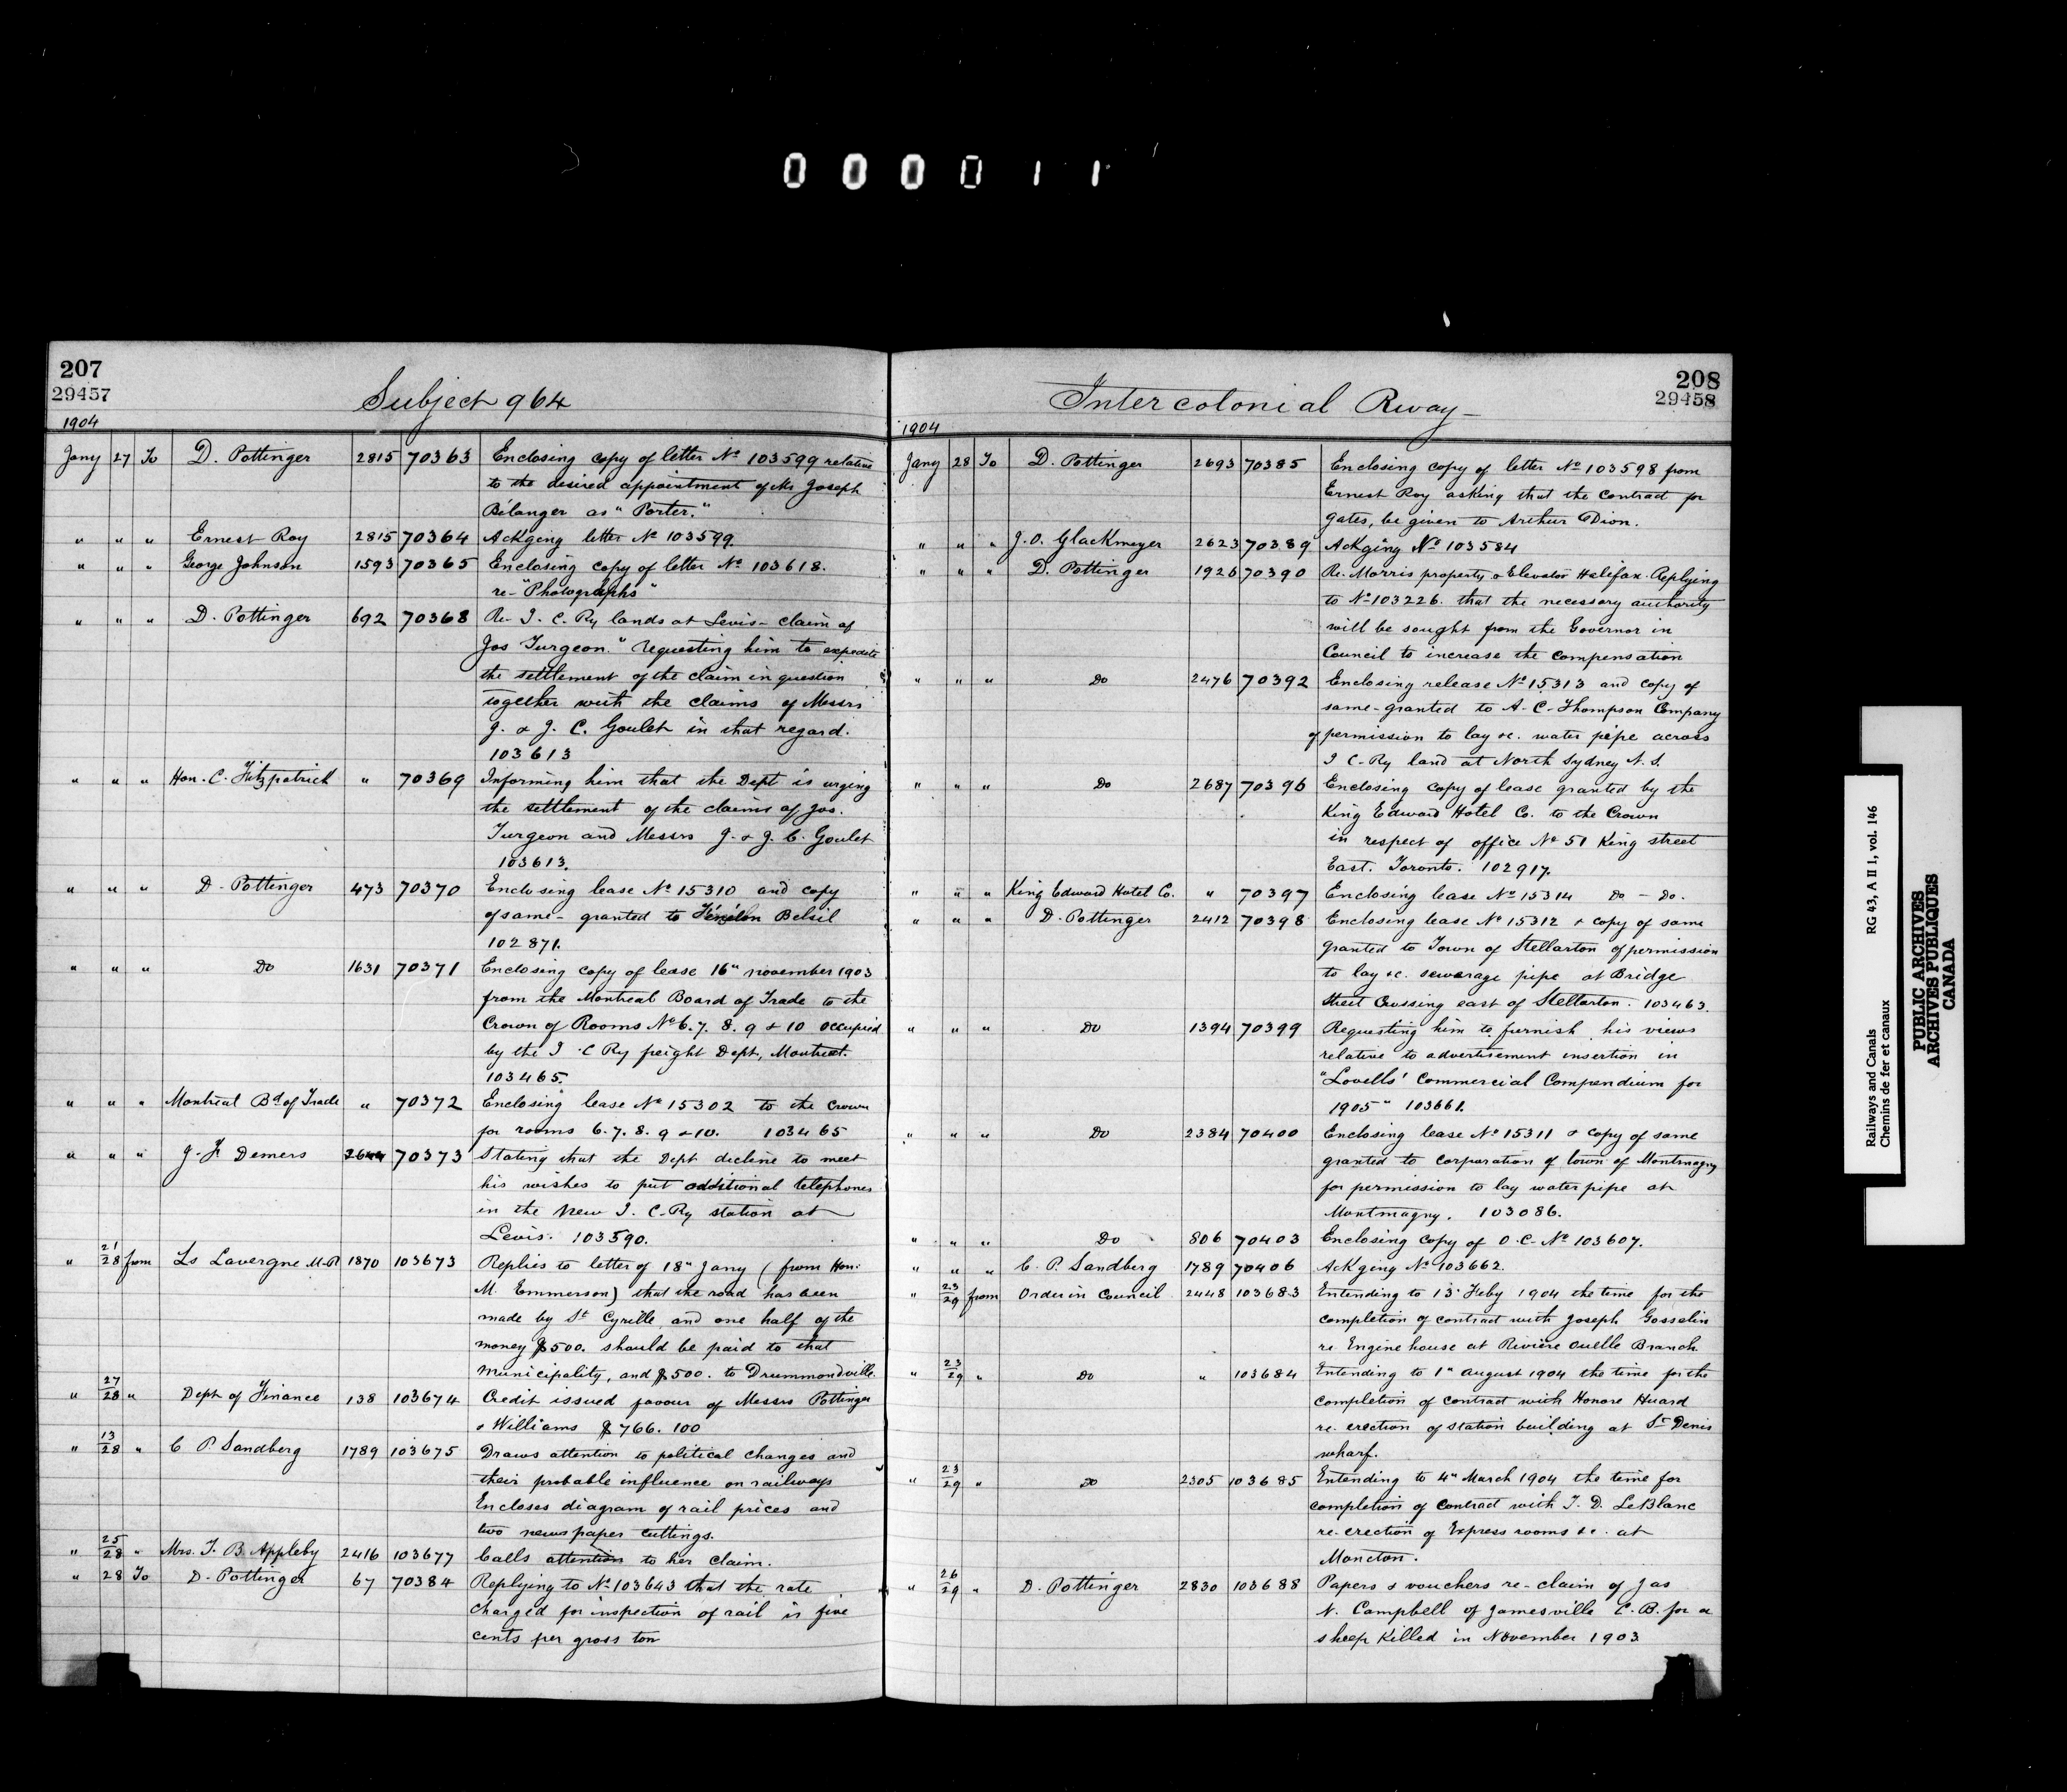 000011
207
29457
Subject 964
1904
Jany 27 To D. Pottinger 2815 70363 Enclosing copy of letter No 103599 relative
to the desired appointment of Mr Joseph
Bélanger as "Porter."
" " " Ernest Roy 2815 70364 Ackging letter No 103599
" " " George Johnson 1593 70365 Enclosing copy of letter No 103618.
re-"Photographs"
" " " D. Pottinger 692 70368 Re- I. C. Ry lands at Levis- claim of
Jos Turgeon." requesting him to expedite
the settlement of the claim in question
together with the claims of Messrs
J. & J. C. Goulet in that regard.
103613
" " " Hon. C. Fitzpatrick " 70369 Informing him that the Dept is urging
the settlement of the claims of Jos.
Turgeon and Messrs J. & J. C. Goulet
103613.
" " " D. Pottinger 473 70370 Enclosing lease No 15310 and copy
of same- granted to Fénélon Belsil
102871.
" " " Do 1631 70371 Enclosing copy of lease 16" november 1903
from the Montreal Board of Trade to the
Crown of Rooms No 6. 7. 8. 9 & 10 occupied
by the I. C Ry freight Dept, Montreal.
103465.
" " " Montreal Bd of Trade " 70372 Enclosing lease No 15302 to the Crown
for rooms 6. 7. 8. 9 & 10. 103465
" " " J. F. Demers 2644 70373 Stating that the Dept decline to meet
his wishes to put additional telephones
in the new I. C. Ry station at
Levis. 103590.
" 21/28 from Ls Lavergne M.P. 1870 103673 Replies to letter of 18" Jany (from Hon:
M. Emmerson) that the road has been
made by St Cyrille, and one half of the
money $500. should be paid to that
municipality, and $500. to Drummondville.
" 27/28 " Dept of Finance 138 103674 Credit issued favour of Messrs Pottinger
& Williams $766.100
" 13/28 " C P. Sandberg 1789 103675 Draws attention to political changes and
their probable influence on railways
Encloses diagram of rail prices and
two newspaper cuttings.
" 25/28 " Mrs. T. B. Appleby 2416 103677 Calls attention to her claim.
" 28 To D. Pottinger 67 70384 Replying to No 103643 that the rate
charged for inspection of rail is five
cents per gross ton
208
29458
Intercolonial Rway
1904
Jany 28 To D. Pottinger 2693 70385 Enclosing copy of letter No 103598 from
Ernest Roy asking that the contract for
gates, be given to Arthur Dion.
" " " J. O. Glackmeyer 2623 70389 Ackging No 103584
" " " D. Pottinger 1926 70390 Re. Morris property & Elevator Halifax. Replying
to No 103226. that the necessary authority
will be sought from the Governor in
Council to increase the compensation
" " " Do 2476 70392 Enclosing release No 15313 and copy of
same-granted to A. C. Thompson Company
of permission to lay &c. water pipe across
I C. Ry land at North Sydney N. S.
" " " Do 2687 70396 Enclosing copy of lease granted by the
King Edward Hotel Co. to the Crown
in respect of office No 51 King street
East. Toronto. 102917.
" " " King Edward Hotel Co. " 70397 Enclosing lease No 15314 Do - Do.
" " " D. Pottinger 2412 70398 Enclosing lease No 15312 & copy of same
granted to Town of Stellarton of permission
to lay &c. sewerage pipe at Bridge
street Crossing east of Stellarton. 103463.
" " " Do 1394 70399 Requesting him to furnish his views
relative to advertisement insertion in
"Lovells' Commercial Compendium for
1905" 103661.
" " " Do 2384 70400 Enclosing lease No 15311 & copy of same
granted to Corporation of town of Montmagny
for permission to lay water pipe at
Montmagny. 103086.
" " " Do 806 70403 Enclosing copy of O. C. No 103607.
" " " C. P. Sandberg 1789 70406 Ackging No 103662.
" 23/29 from Order in Council 2448 103683 Extending to 13" Feby 1904 the time for the
completion of contract with Joseph Gosselin
re. Engine house at Rivière Ouelle Branch
" 23/29 " Do " 103684 Extending to 1" August 1904 the time for the
completion of contract with Honore Huard
re. erection of station building at St Denis
wharf.
" 23/29 " Do 2305 103685 Extending to 4" March 1904 the time for
completion of contract with T. D. LeBlanc
re-erection of Express rooms &c. at
Moncton.
" 26/29 " D. Pottinger 2830 103688 Papers & vouchers re-claim of Jas
N. Campbell of Jamesville C. B. for a
sheep killed in November 1903
Railways and Canals RG 43, A II 1, vol. 146
Chemins de fer et canaux
PUBLIC ARCHIVES
ARCHIVES PUBLIQUES
CANADA